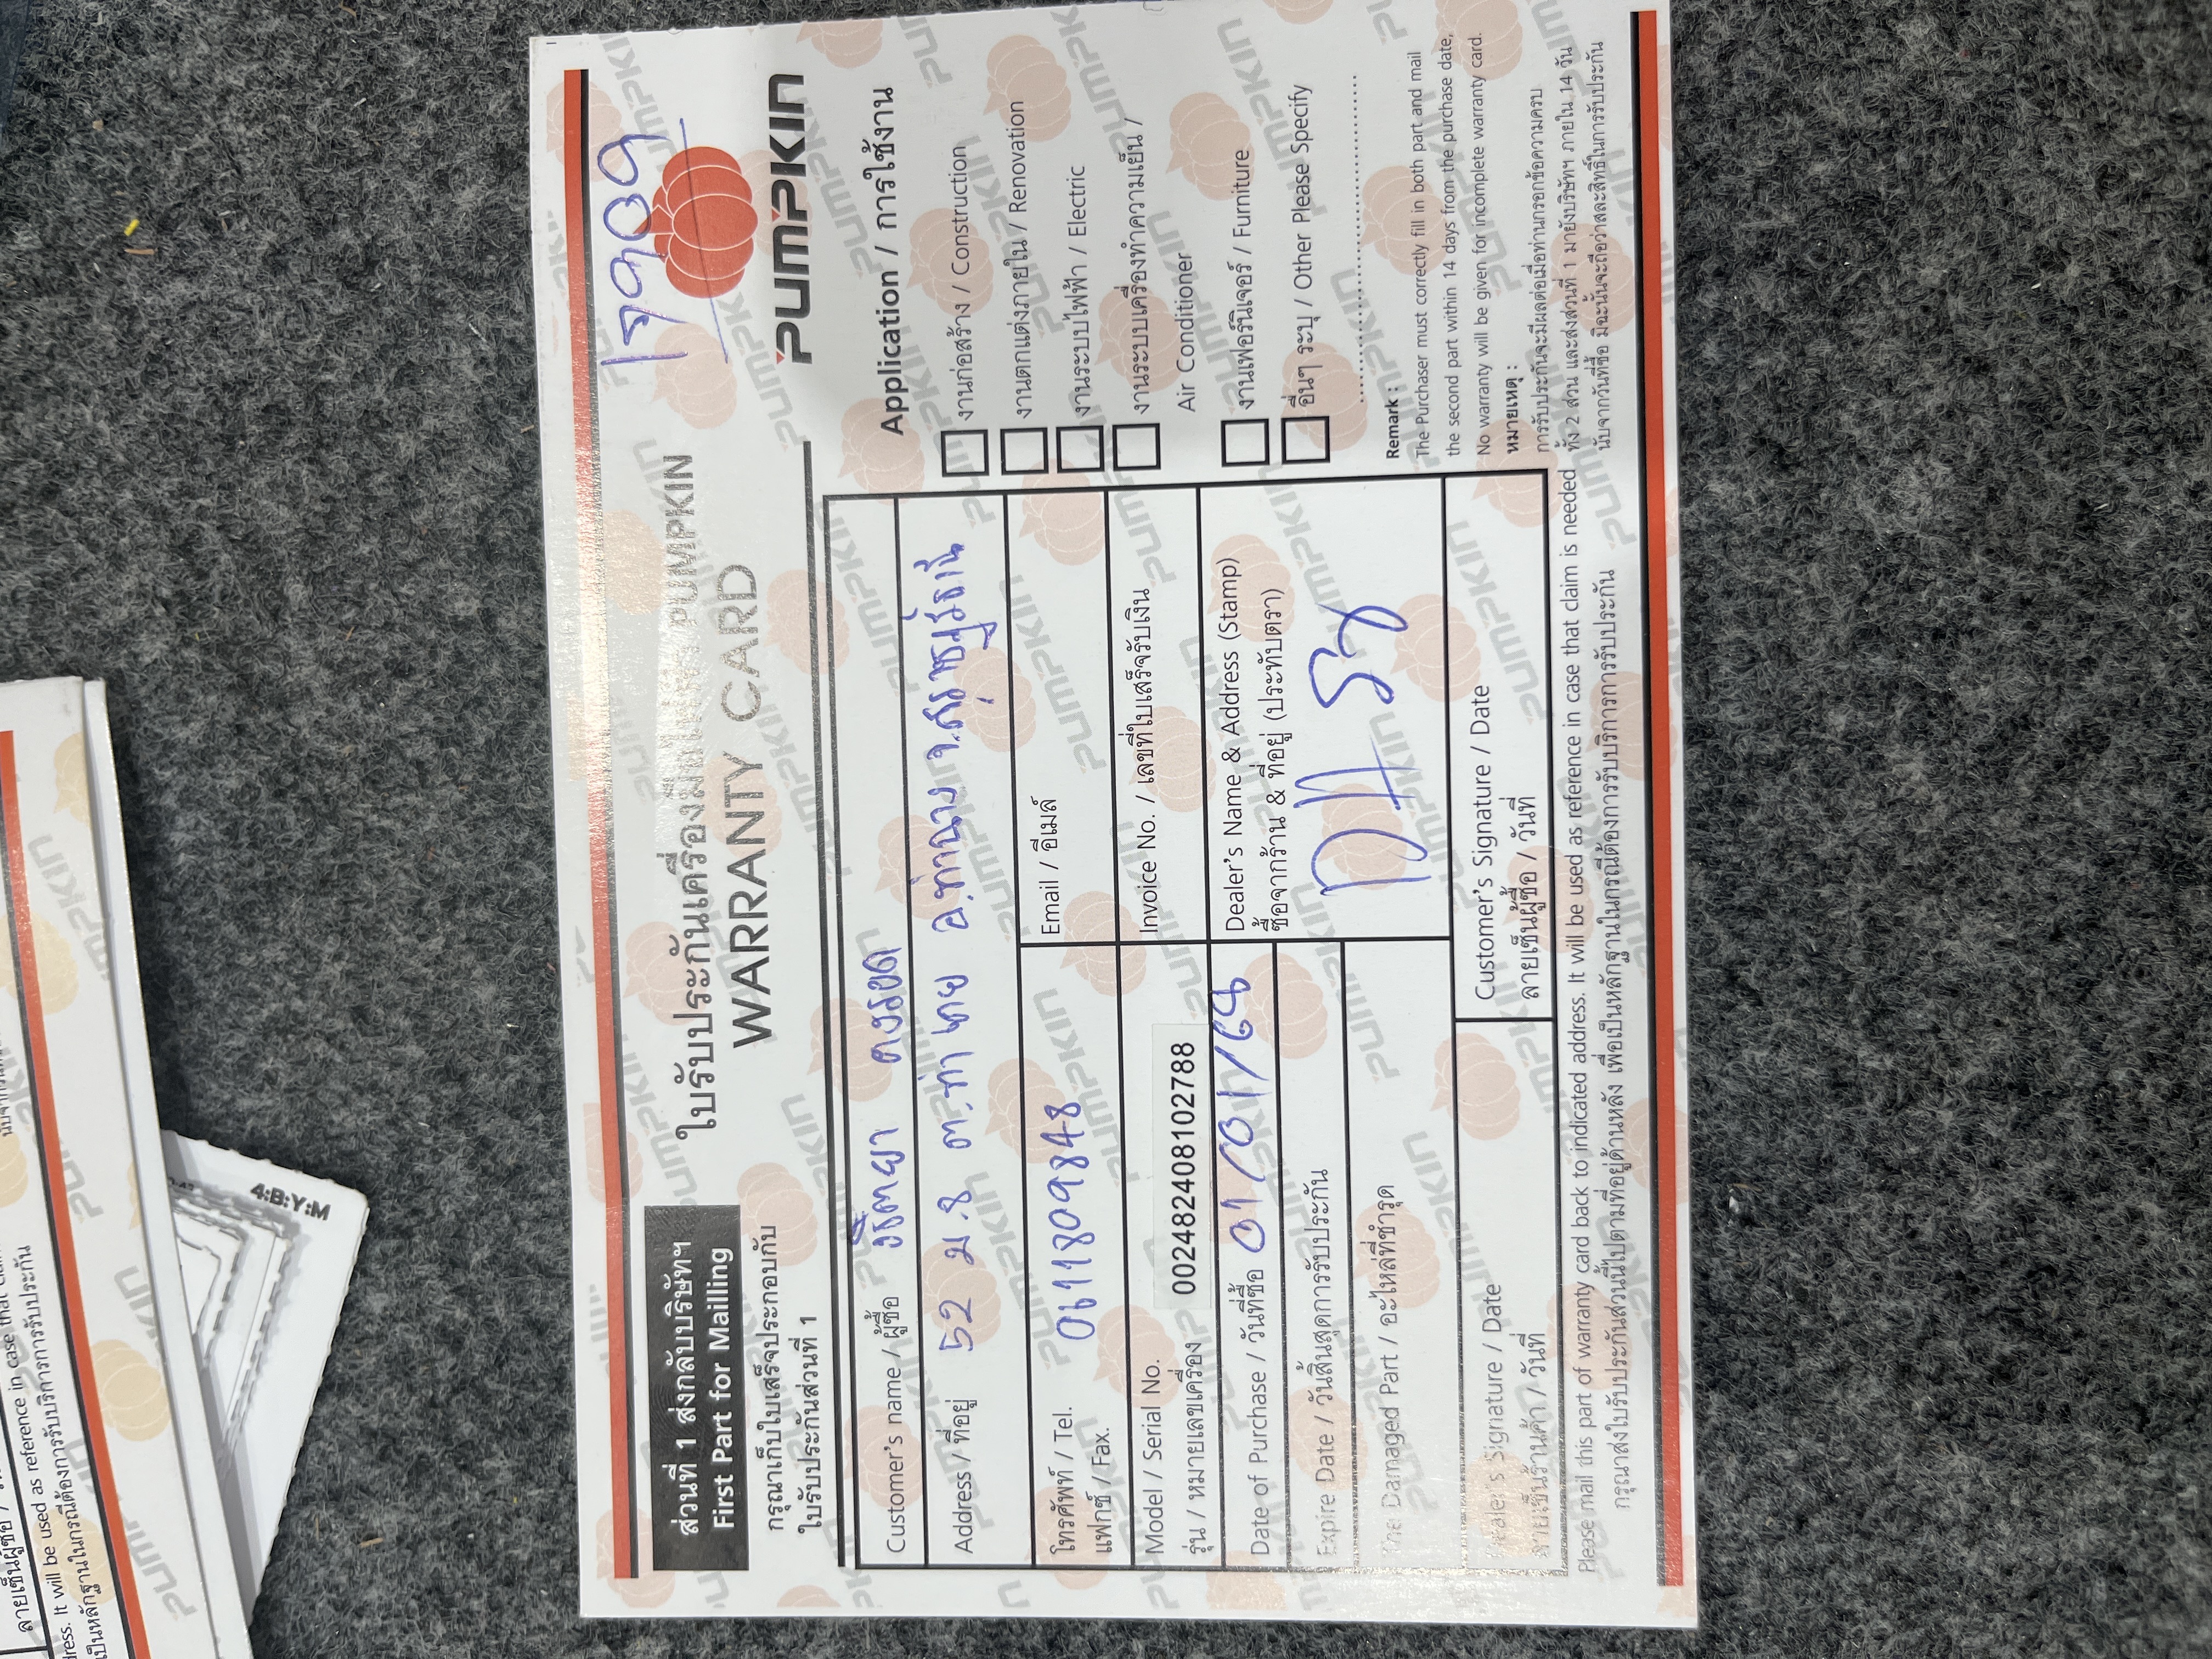 ส่วนที่ 1 ส่งกลับบริษัทฯ
First Part for Mailling
กรุณาเก็บใบเสร็จประกอบกับ
ใบรับประกันส่วนที่ 1
ใบรับประกันเครื่องมือไฟฟ้า PUMPKIN
WARRANTY CARD
PUMPKIN
Customer's name / ผู้ซื้อ
Address / ที่อยู่ 52 ม.8 ต.ท่าเคย อ.ท่าฉาง จ.สุราษฎร์ธานี
โทรศัพท์ / Tel. 0611809848
แฟกซ์ / Fax.
Email / อีเมล์
Model / Serial No.
รุ่น / หมายเลขเครื่อง 002482408102788
Invoice No. / เลขที่ใบเสร็จรับเงิน
Date of Purchase / วันที่ซื้อ 01/01/68
Dealer's Name & Address (Stamp)
ซื้อจากร้าน & ที่อยู่ (ประทับตรา)
Expire Date / วันสิ้นสุดการรับประกัน
The Damaged Part / อะไหล่ที่ชำรุด
Dealer's Signature / Date
ลายเซ็นร้านค้า / วันที่
Customer's Signature / Date
ลายเซ็นผู้ซื้อ / วันที่
Application / การใช้งาน
งานก่อสร้าง / Construction
งานตกแต่งภายใน / Renovation
งานระบบไฟฟ้า / Electric
งานระบบเครื่องทำความเย็น /
Air Conditioner
งานเฟอร์นิเจอร์ / Furniture
อื่นๆ ระบุ / Other Please Specify
Remark :
The Purchaser must correctly fill in both part and mail
the second part within 14 days from the purchase date,
No warranty will be given for incomplete warranty card.
หมายเหตุ :
การรับประกันจะมีผลต่อเมื่อท่านกรอกข้อความครบ
ทั้ง 2 ส่วน และส่งส่วนที่ 1 มายังบริษัทฯ ภายใน 14 วัน
นับจากวันที่ซื้อ มิฉะนั้นจะถือว่าสละสิทธิ์ในการรับประกัน
Please mail this part of warranty card back to indicated address. It will be used as reference in case that claim is needed
กรุณาส่งใบรับประกันส่วนนี้ไปตามที่อยู่ด้านหลัง เพื่อเป็นหลักฐานในกรณีต้องการรับบริการการรับประกัน
4:B:Y:M